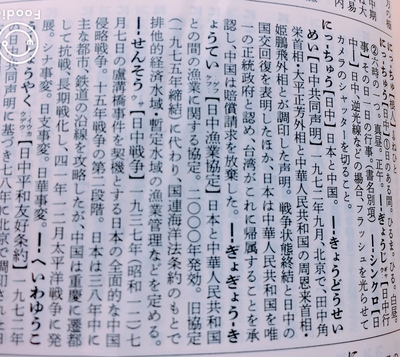 にっ‐ちゅう【日中】①日のある間。ひるま。ひる。白昼。
②六時の一つ。真昼。正午。―‐ぎょうじ【日中行
事】一日の行事。(書名別項)―‐シンクロ【日
中】日中、逆光線などの場合、フラッシュを光らせて
カメラのシャッターを切ること。
にっ‐ちゅう【日中】日本と中国。―‐きょうどうせい
めい【日中共同声明】一九七二年九月、北京で、田中角
栄首相・大平正芳外相と中華人民共和国の周恩来首相・
姫鵬飛外相とが調印した声明。戦争状態終結と日中の
国交回復を表明したほか、日本は中華人民共和国を唯
一の正統政府と認め、台湾がこれに帰属することを承
認し、中国は賠償請求を放棄した。―‐ぎょぎょう‐き
ょうてい【日中漁業協定】日本と中華人民共和国
との間の漁業に関する協定。二〇〇〇年発効。旧協定
(一九七五年締結)に代わり、国連海洋法条約のもとで
排他的経済水域・暫定水域の漁業管理などを定める。
―‐せんそう【日中戦争】一九三七年(昭和一二)七
月七日の盧溝橋事件を契機とする日本の全面的な中国
侵略戦争。十五年戦争の第二段階。日本は三八年中に
主な都市、鉄道の沿線を攻略したが、中国は重慶に遷都
して抗戦、長期戦化し、四一年一二月太平洋戦争に発
展。シナ事変。日支事変。日華事変。―‐へいわゆうこ
うじょうやく【日中平和友好条約】一九七二年
日中共同声明に基づき七八年に北京で調印された日
Foodi